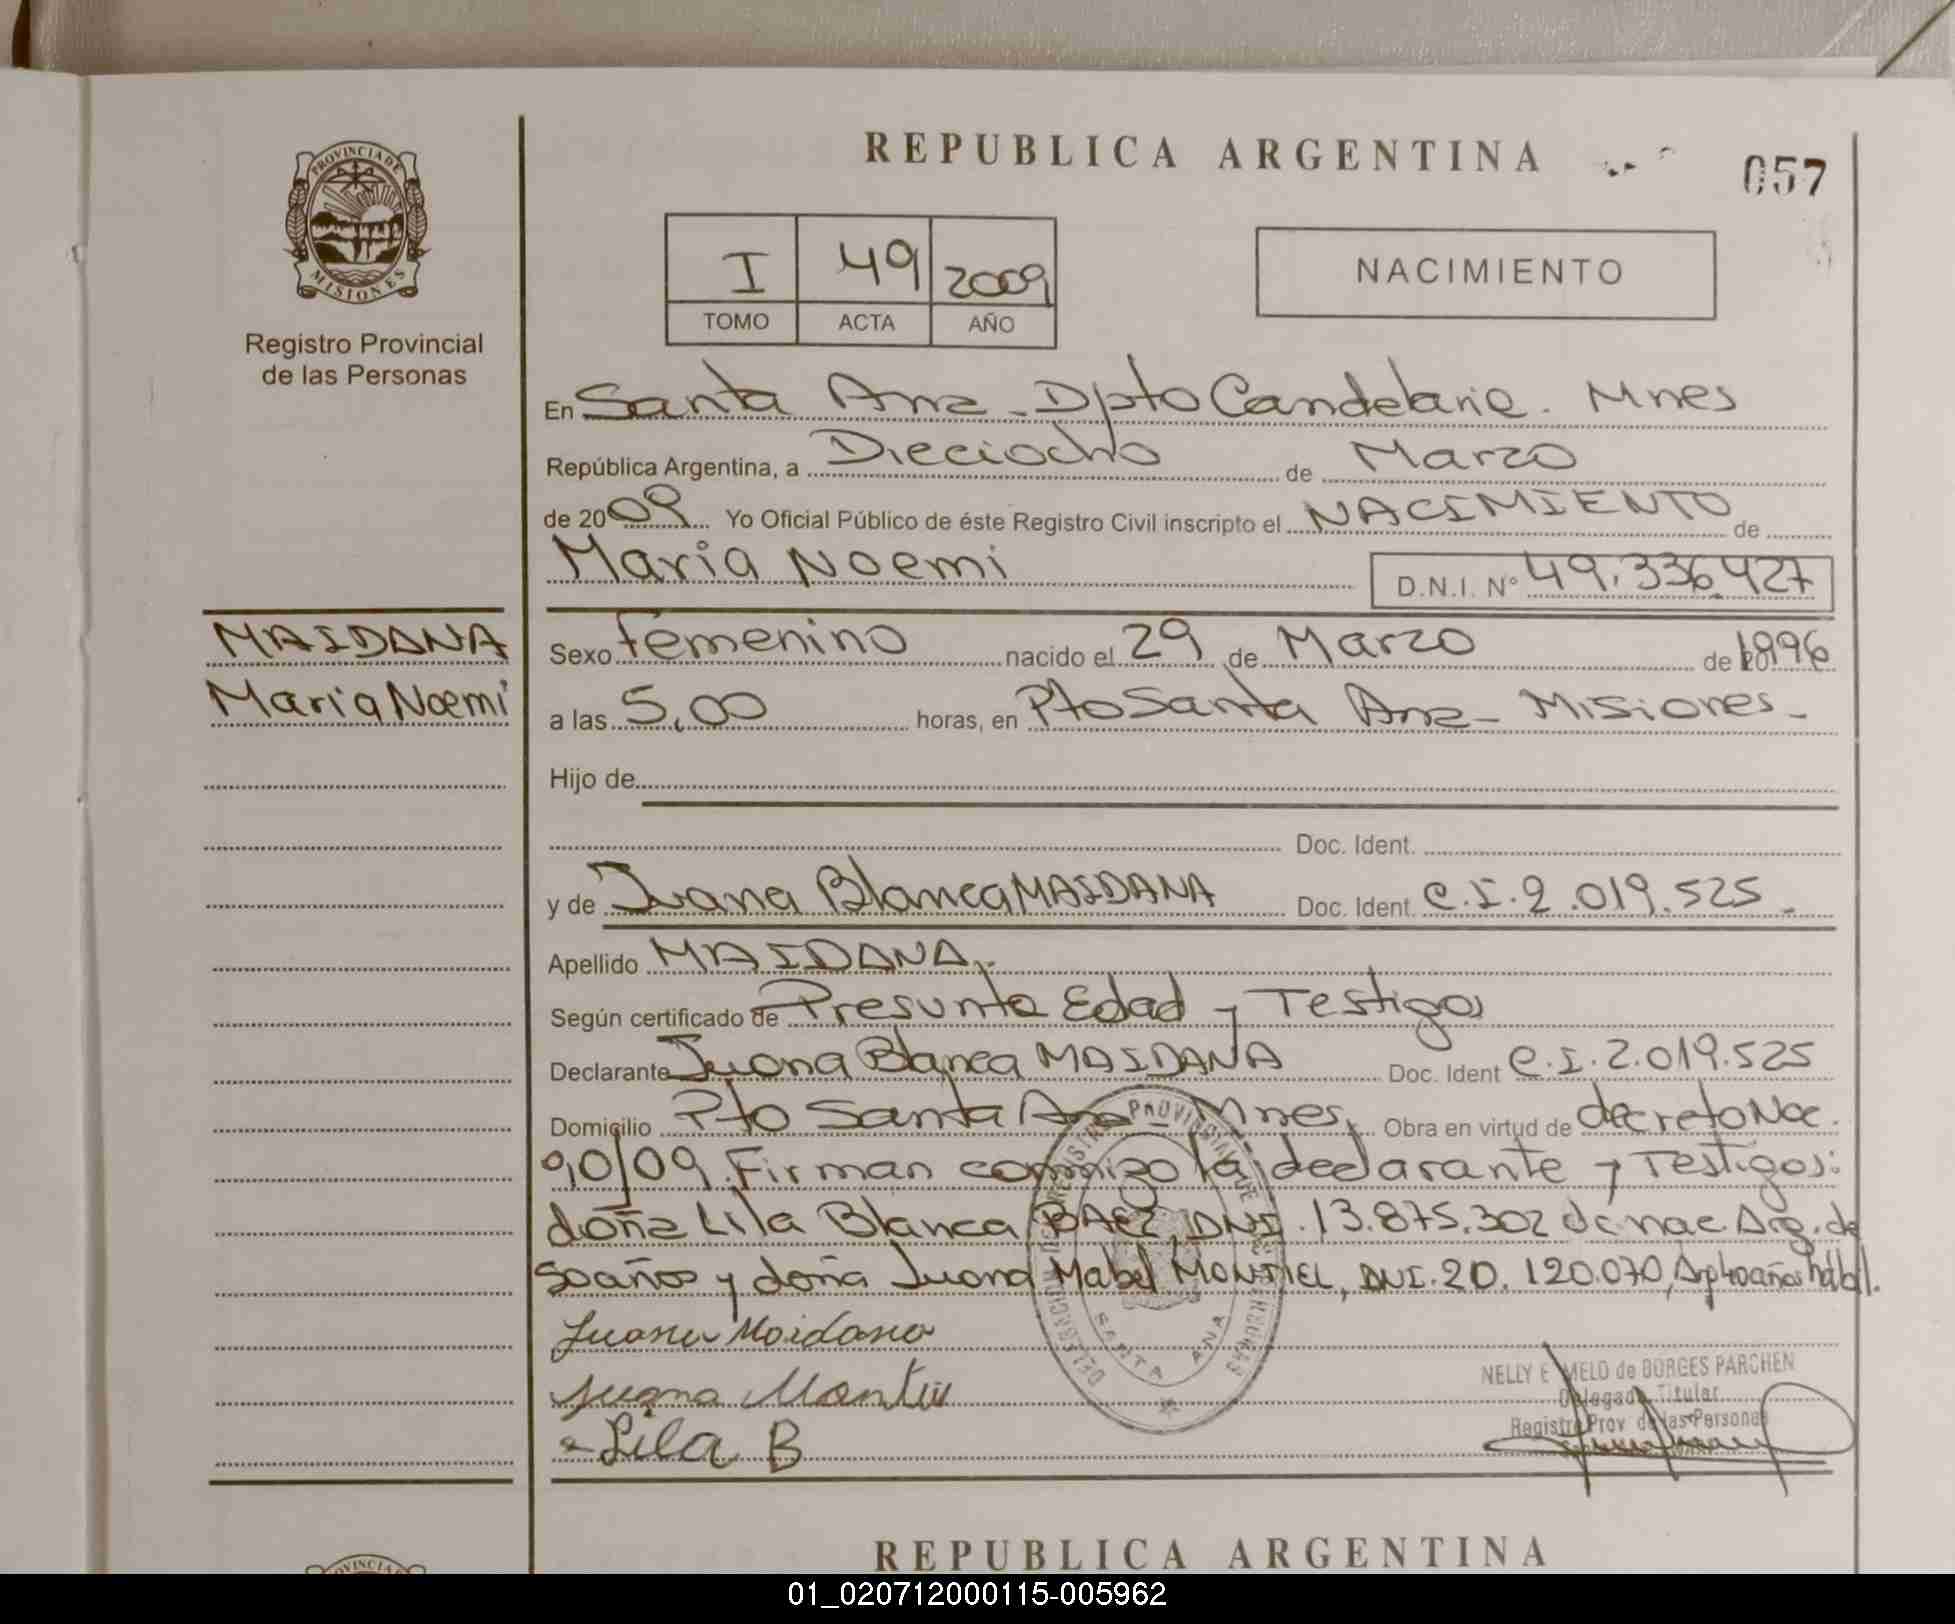 REPUBLICA ARGENTINA
057
PROVINCIA DE
MISIONES
Registro Provincial
de las Personas
I 49 2009
TOMO ACTA AÑO
NACIMIENTO
En Santa Ana - Dpto Candelaria. Mnes
República Argentina, a Dieciocho de Marzo
de 2009 Yo Oficial Público de éste Registro Civil inscripto el NACIMIENTO de
Maria Noemi D.N.I. Nº 49.336.427
MAIDANA
Maria Noemi
Sexo femenino nacido el 29 de Marzo de 1996
a las 5,00 horas, en Pto Santa Ana - Misiones -
Hijo de
Doc. Ident.
y de Juana Blanca MAIDANA Doc. Ident. C.I. 2.019.525 -
Apellido MAIDANA.
Según certificado de Presunta Edad y Testigos
Declarante Juana Blanca MAIDANA Doc. Ident C.I. 2.019.525
Domicilio Pto Santa Ana - Mnes. Obra en virtud de decreto Nac.
90/09. Firman conmigo la declarante y Testigos:
doña Lila Blanca BAEZ, DNI. 13.875.302 de nac. Arg. de
50 años y doña Juana Mabel MONTIEL, DNI. 20.120.070, Arg 40 años hábil.
Juana Maidana
Juana Montiel
Lila B
SANTA ANA
NELLY E MELO de BORGES PARCHEN
Delegada Titular
Registro Prov de las Personas
REPUBLICA ARGENTINA
01_020712000115-005962